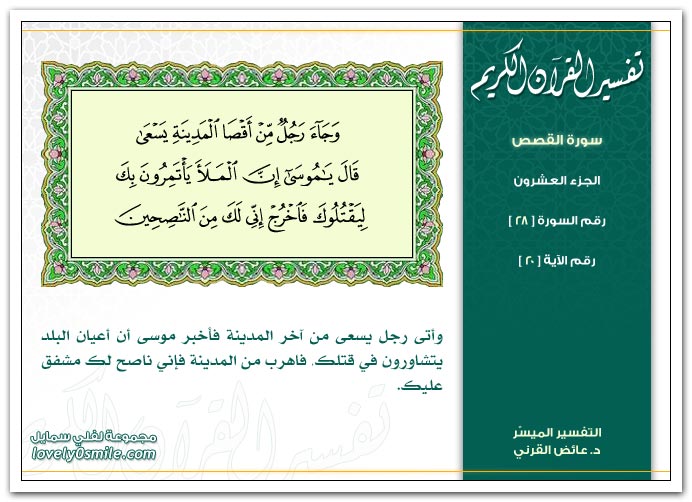 تفسير القرآن الكريم
سورة القصص
الجزء العشرون
رقم السورة [ ٢٨ ]
رقم الآية [ ٢٠ ]
وَجَآءَ رَجُلٌ مِّنْ أَقْصَا ٱلْمَدِينَةِ يَسْعَىٰ
قَالَ يَٰمُوسَىٰٓ إِنَّ ٱلْمَلَأَ يَأْتَمِرُونَ بِكَ
لِيَقْتُلُوكَ فَٱخْرُجْ إِنِّي لَكَ مِنَ ٱلنَّٰصِحِينَ
وأتى رجل يسعى من آخر المدينة فأخبر موسى أن أعيان البلد
يتشاورون في قتلك. فاهرب من المدينة فإني ناصح لك مشفق
عليك.
التفسير الميسّر
د. عائض القرني
مجموعة لفلي سمايل
lovely0smile.com
تفسير القرآن الكريم